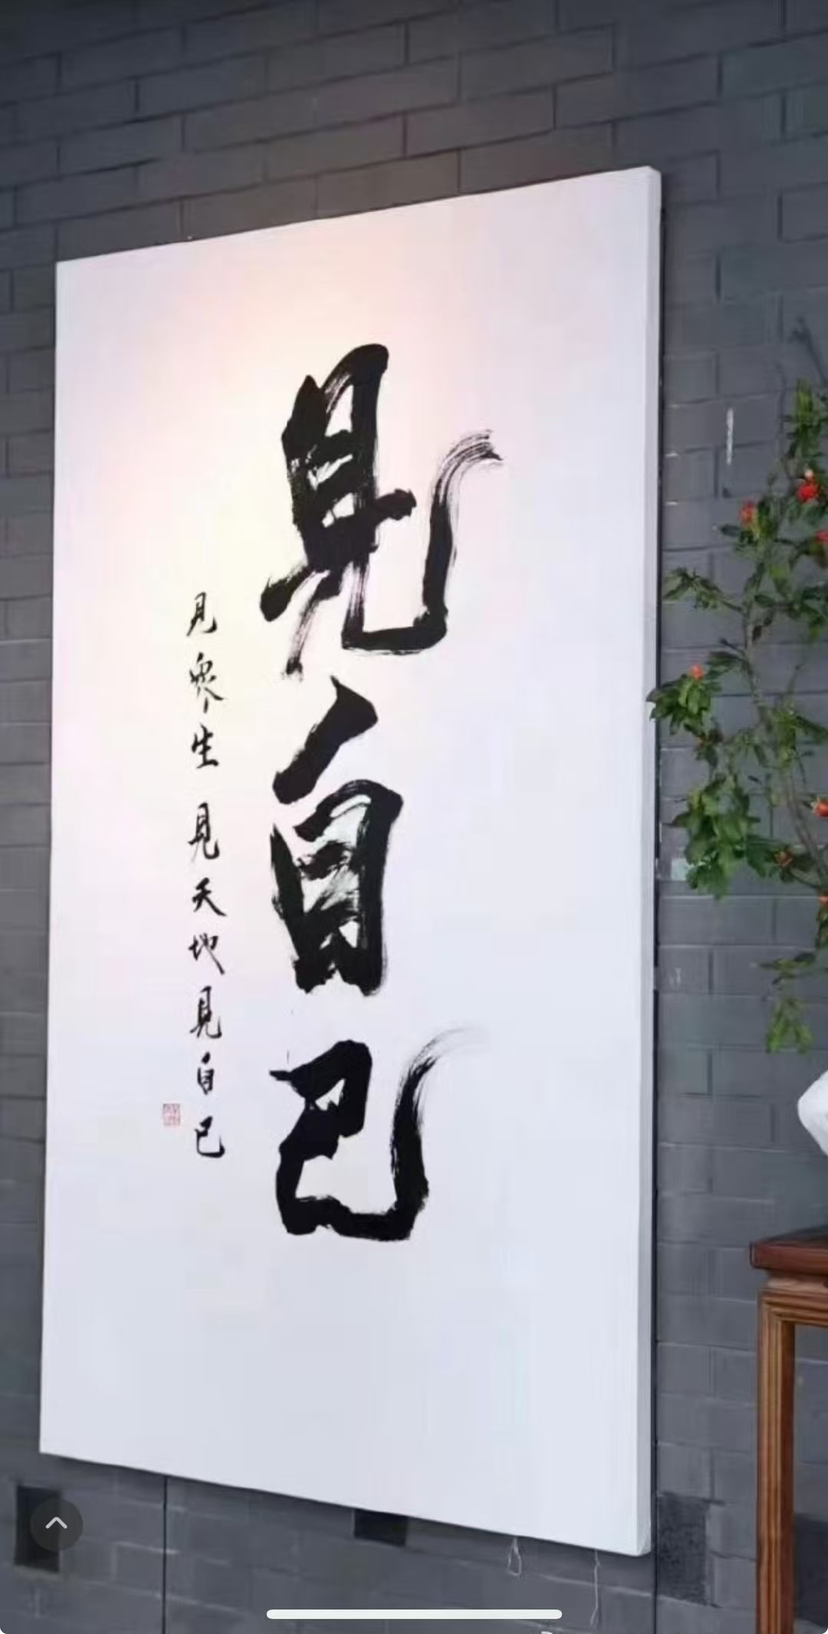 見自己
見眾生 見天地 見自己